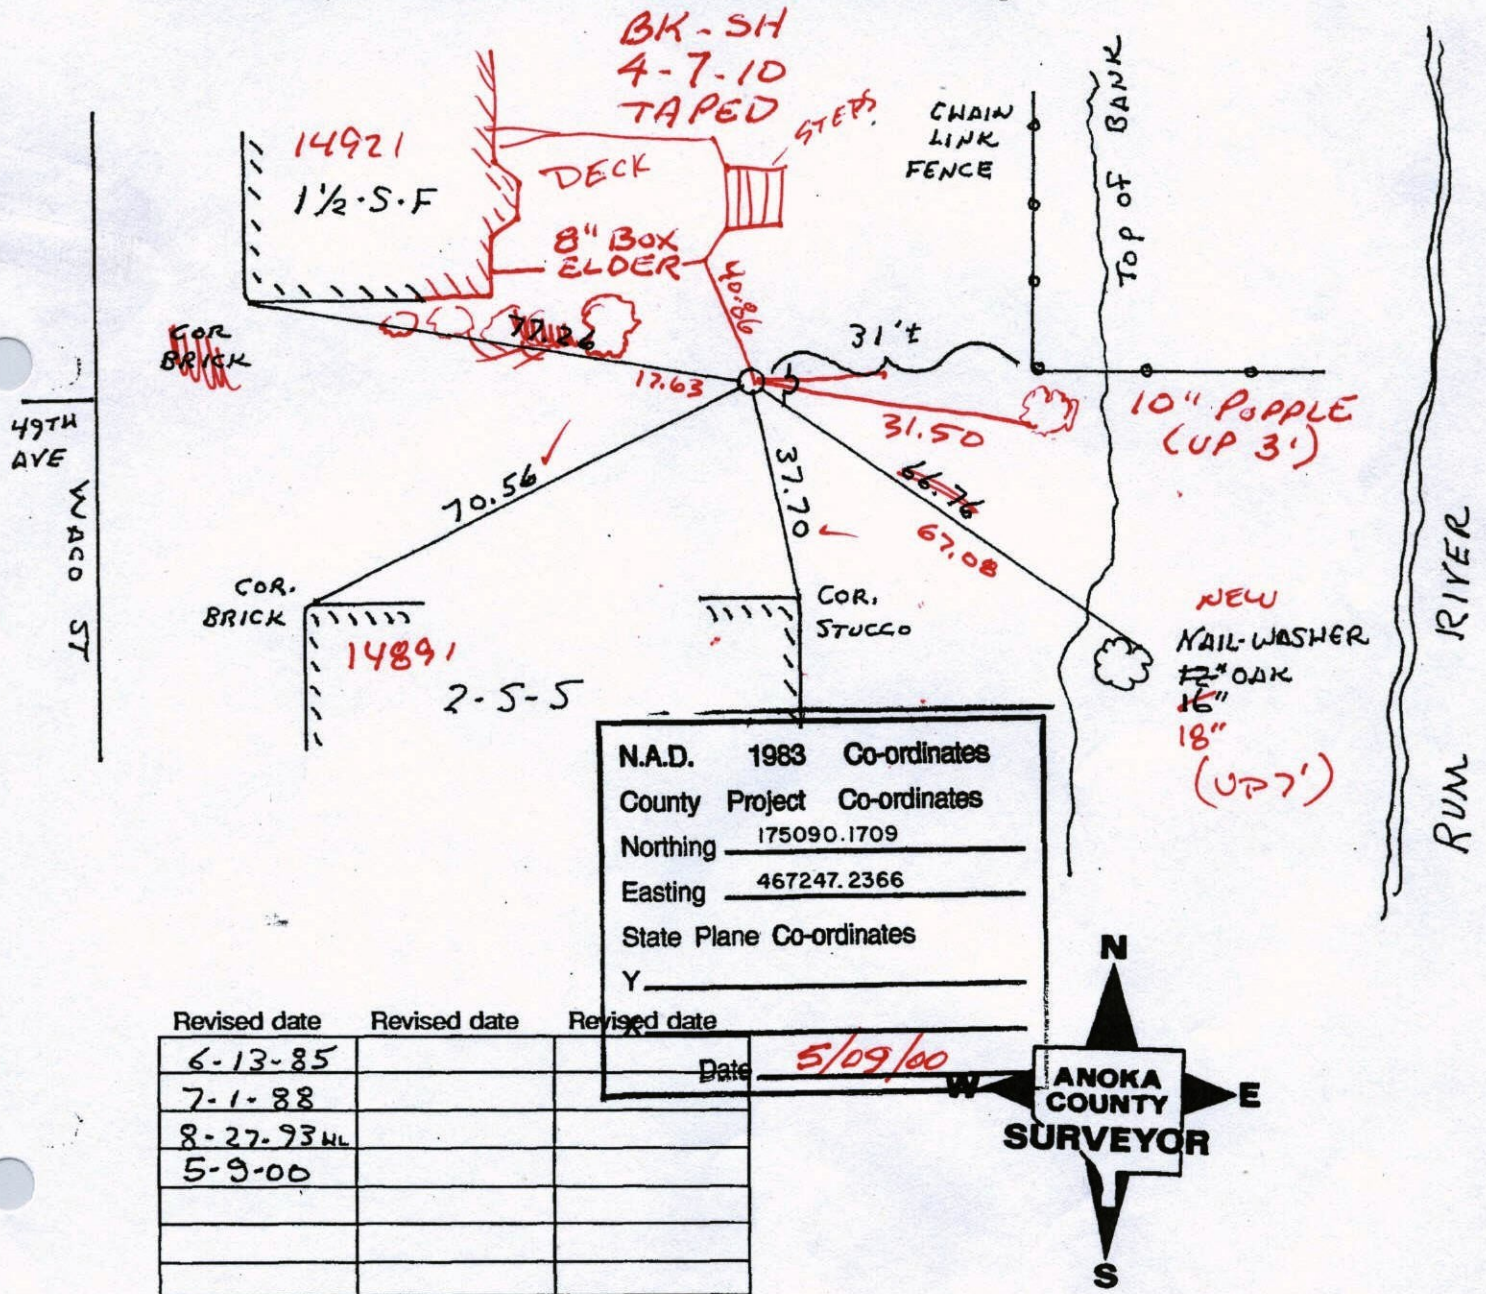 BK - SH
4-7-10
TAPED
STEPS
CHAIN
LINK
FENCE
TOP OF BANK
14921
1½·S·F
DECK
8" BOX
ELDER
40.86
COR
BRICK
77.26
17.63
31'±
31.50
10" POPPLE
(UP 3')
49TH
AVE
WACO ST
70.56
37.70
66.76
67.08
COR.
BRICK
14891
2-5-5
COR.
STUCCO
NEW
NAIL-WASHER
12" OAK
16"
18"
(UP 7')
RUM RIVER
N.A.D. 1983 Co-ordinates
County Project Co-ordinates
Northing 175090.1709
Easting 467247.2366
State Plane Co-ordinates
Y
X
Date 5/09/00
Revised date Revised date Revised date
6-13-85
7-1-88
8-27-93 HL
5-9-00
N
W E
ANOKA
COUNTY
SURVEYOR
S